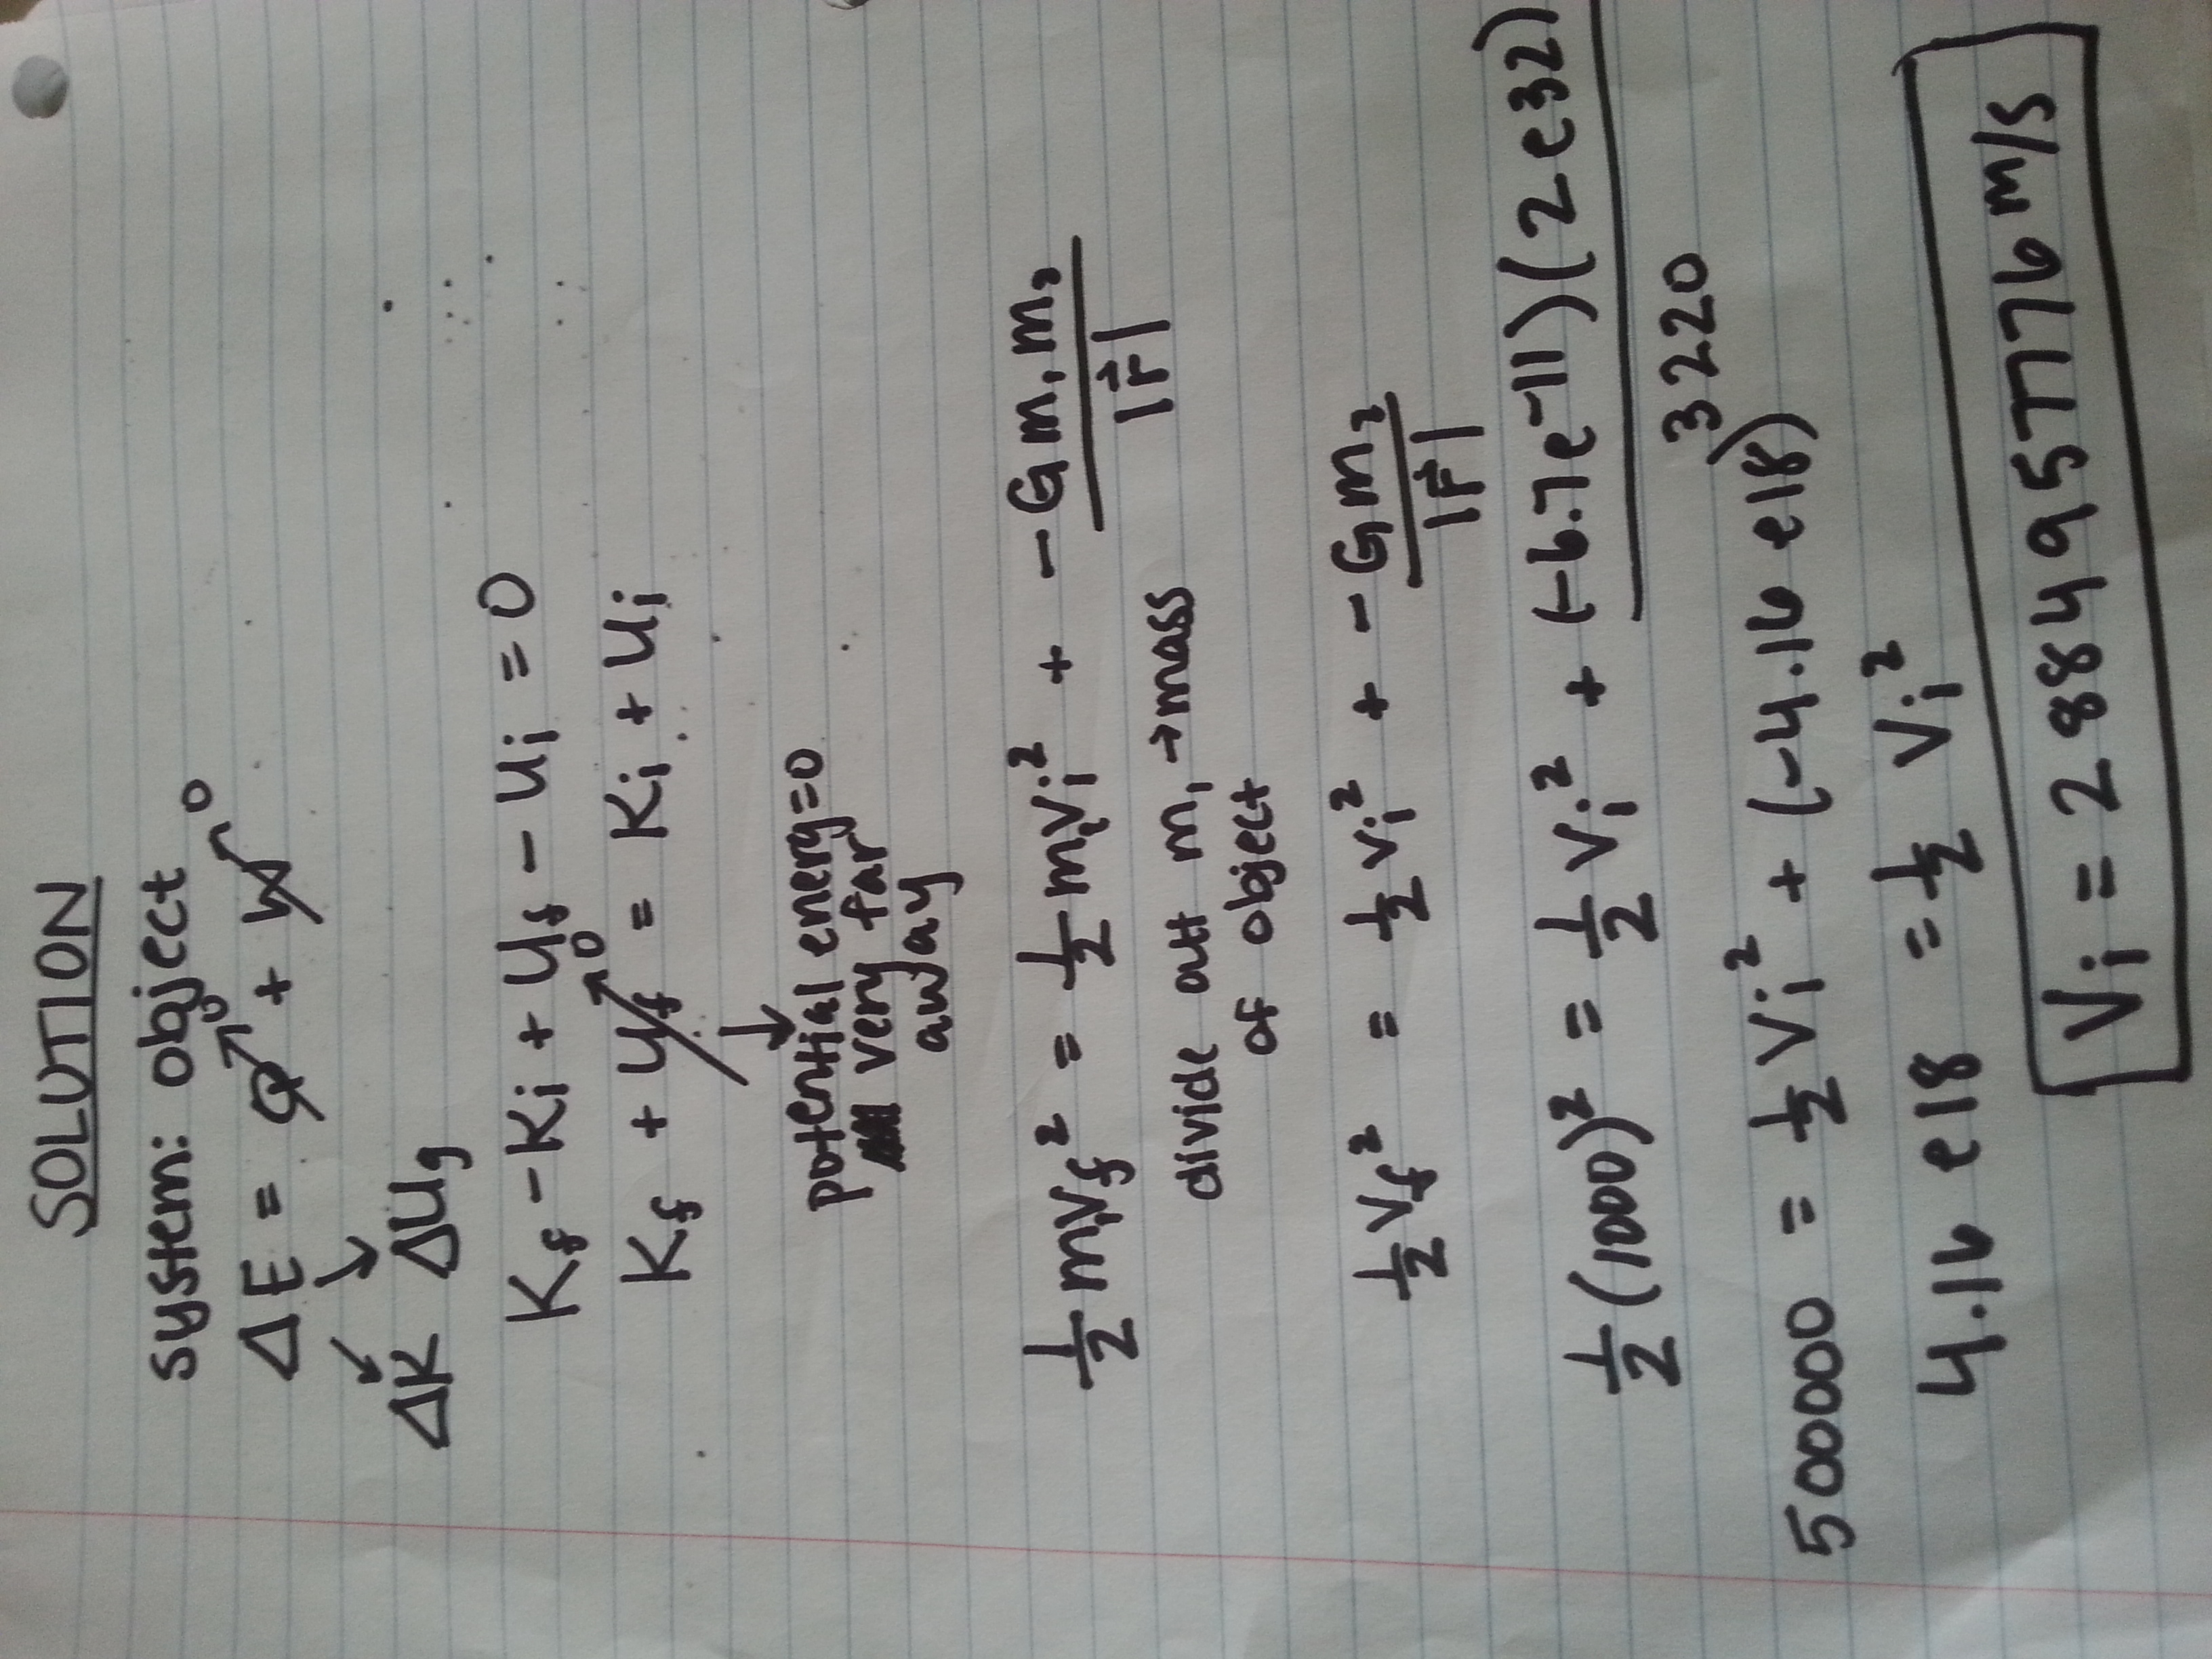 SOLUTION
system: object
ΔE = Q↗0 + W↗0
↙ ↘
ΔK ΔUg
Kf - Ki + Uf - Ui = 0
Kf + Uf↗0 = Ki + Ui
↓
potential energy=0
very far
away
1/2 m₁vf² = 1/2 m₁vi² + -Gm₁m₂/|r⃗|
divide out m₁ → mass
of object
1/2 vf² = 1/2 vi² + -Gm₂/|r⃗|
1/2 (1000)² = 1/2 vi² + (-6.7e-11)(2e32)/3220
500000 = 1/2 vi² + (-4.16e18)
4.16 e18 = 1/2 vi²
Vi = 2884957776 m/s